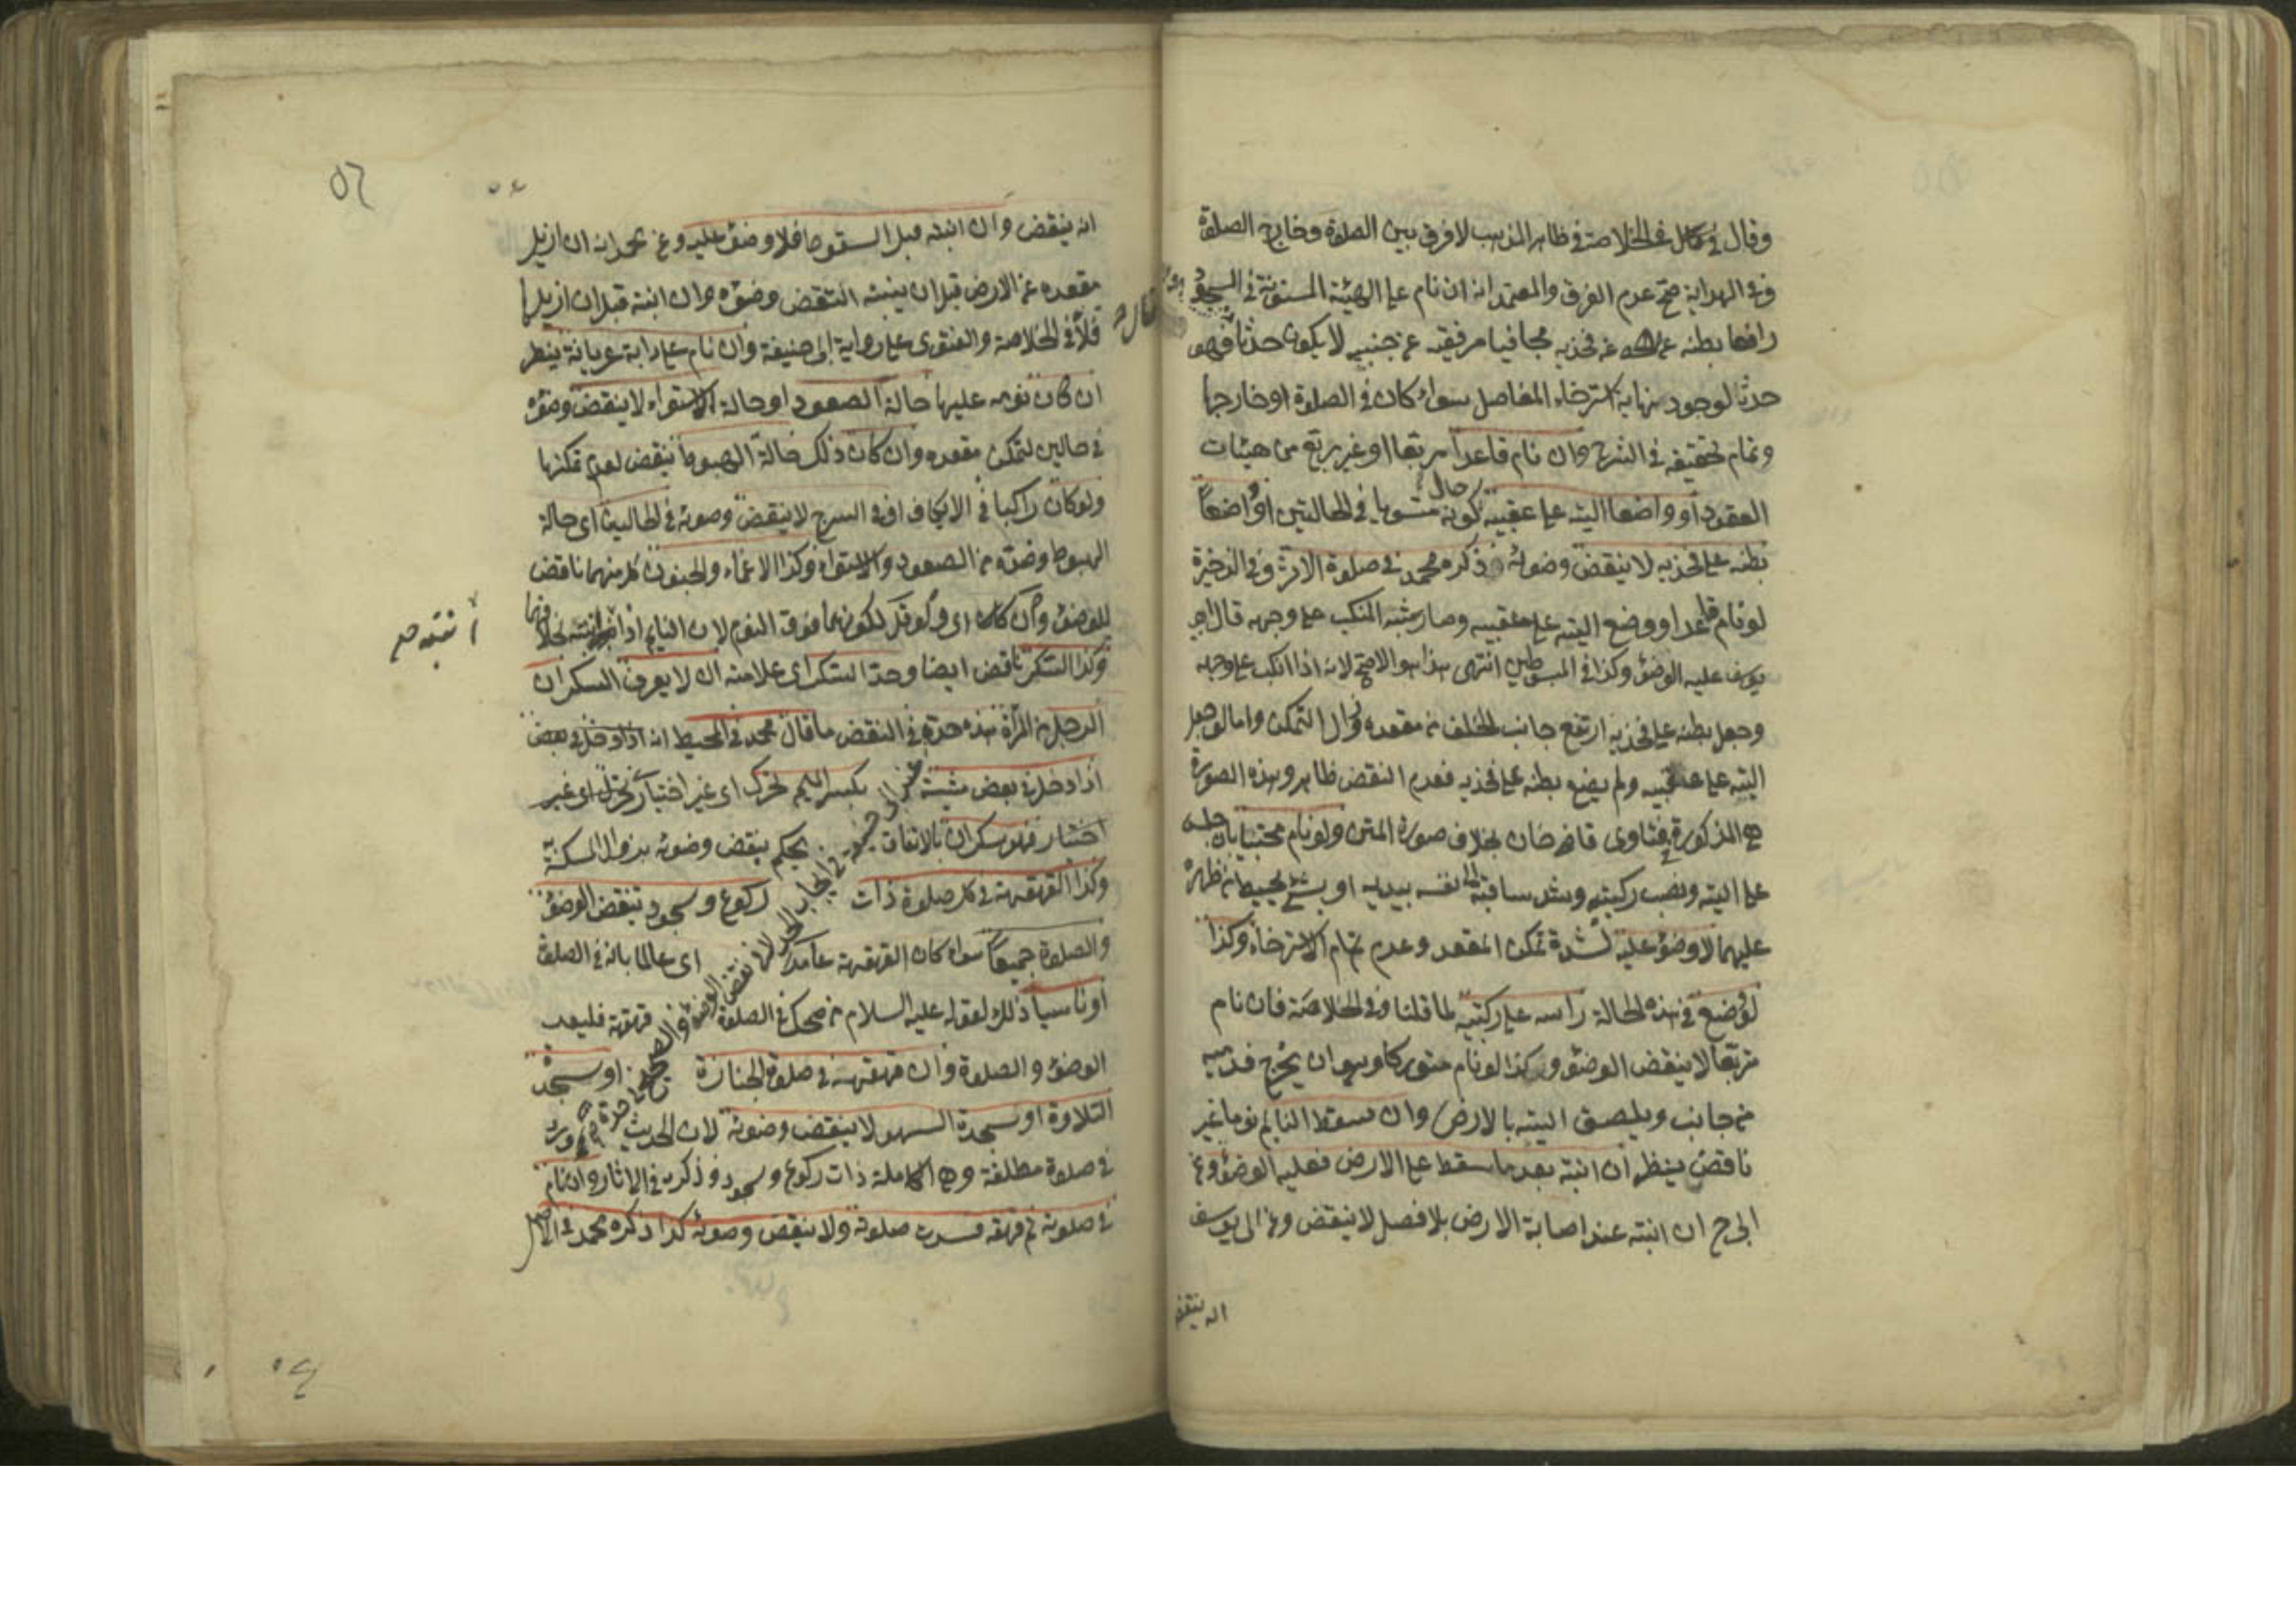 وقال في الخلاصة في ظاهر المذهب لا فرق بين الصلوة وخارج الصلوة
وفي الهداية صحح عدم الفرق والمعتمد انه ان نام على الهيئة المسنونة في السجود
رافعا بطنه عن فخذيه مجافيا مرفقيه عن جنبيه لا يكون حدثا فهو
حدثا لوجود نهاية استرخاء المفاصل سواء كان في الصلوة او خارجها
وتمام تحقيقه في الشرح وان نام قاعدا مربعا او غير مربع من هيئات
القعود او واضعا اليته على عقبيه حال كونه مستويا في الحالتين او واضعا
بطنه على فخذيه لا ينقض وضوئه ذكره محمد في صلوة الاثر وفي الذخيرة
لو نام قاعدا ووضع اليته على عقبيه وصار شبه المنكب على وجهه قال ابو
يوسف عليه الوضؤ وكذا في المبسوطين انتهى هذا هو الاصح لانه اذا انكب على وجهه
وجعل بطنه على فخذيه ارتفع جانب الخلف من مقعده وزال التمكن واما لو جعل
اليته على عقبيه ولم يضع بطنه على فخذيه فعدم النقض ظاهر وهذه الصورة
هي المذكورة في فتاوى قاضي خان بخلاف صورة المتن ولو نام محتبيا بان جلس
على اليته ونصب ركبتيه وشد ساقيه الى نفسه بيديه او بشئ يحيط من ظهره
عليهما لا وضؤ عليه لشدة تمكن المقعد وعدم تمام الاسترخاء وكذا
لو وضع في هذه الحالة راسه على ركبتيه لما قلنا وفي الخلاصة فان نام
متربعا لا ينقض الوضؤ وكذا لو نام متوركا وهو ان يخرج قدميه
من جانب ويلصق اليته بالارض وان سقط النايم نوما غير
ناقض ينظر ان انتبه بعد ما سقط على الارض فعليه الوضؤ وعن
ابي ح ان انتبه عند اصابة الارض بلا فصل لا ينقض وعن ابي يوسف
انه ينتقض
٥٦
انه ينقض وان انتبه قبل السقوط فلا وضؤ عليه وعن محمد انه ان ازيل
مقعده عن الارض قبل ان ينتبه انتقض وضؤه وان انتبه قبل ان ازيل
فلا في الخلاصة والفتوى على رواية ابي حنيفة وان نام على دابة عريانة ينظر
ان كان نومه عليها حالة الصعود او حالة الاستواء لا ينقض وضؤه
في حالين لتمكن مقعده وان كان ذلك حالة الهبوط ينقض لعدم تمكنها
ولو كان راكبا في الاكاف او في السرج لا ينقض وضوئه في الحالين اي حالة
الهبوط وضده من الصعود والاستواء وكذا الاغماء والجنون كل منهما ناقض
للوضؤ وان كان اي ولو قل لكونهما فوق النوم لان النايم اذا انتبه بخلافهما
انتبه صح
وكذا السكر ناقض ايضا وحد السكر اي علامته ان لا يعرف السكران
الرجل من المرأة هذه حده في النقض ما قال محمد في المحيط انه اذا دخل في بعض
اذا دخل في بعض مشيته بكسر الميم تحرك اي غير اختيار تحرك اي غير
اختيار فهو سكران بالاتفاق يحكم بنقض وضوئه بزوال المسكنة به
وكذا القهقهة في كل صلوة ذات ركوع وسجود تنقض الوضؤ
والصلوة جميعا سواء كان القهقهة عامدا اي عالما بانه في الصلوة
او ناسيا ذلك لقوله عليه السلام من ضحك في الصلوة قهقهة فليعد
الوضؤ والصلوة وان قهقهة في صلوة الجنازة او سجدة
التلاوة او سجدة السهو لا ينقض وضوئه لان الحديث ورد
في صلوة مطلقة وهي الكاملة ذات ركوع وسجود وذكر في الاثار وان نام
في صلوته ثم قهقه فسدت صلوته ولا ينقض وضوئه كذا ذكره محمد في الاصل